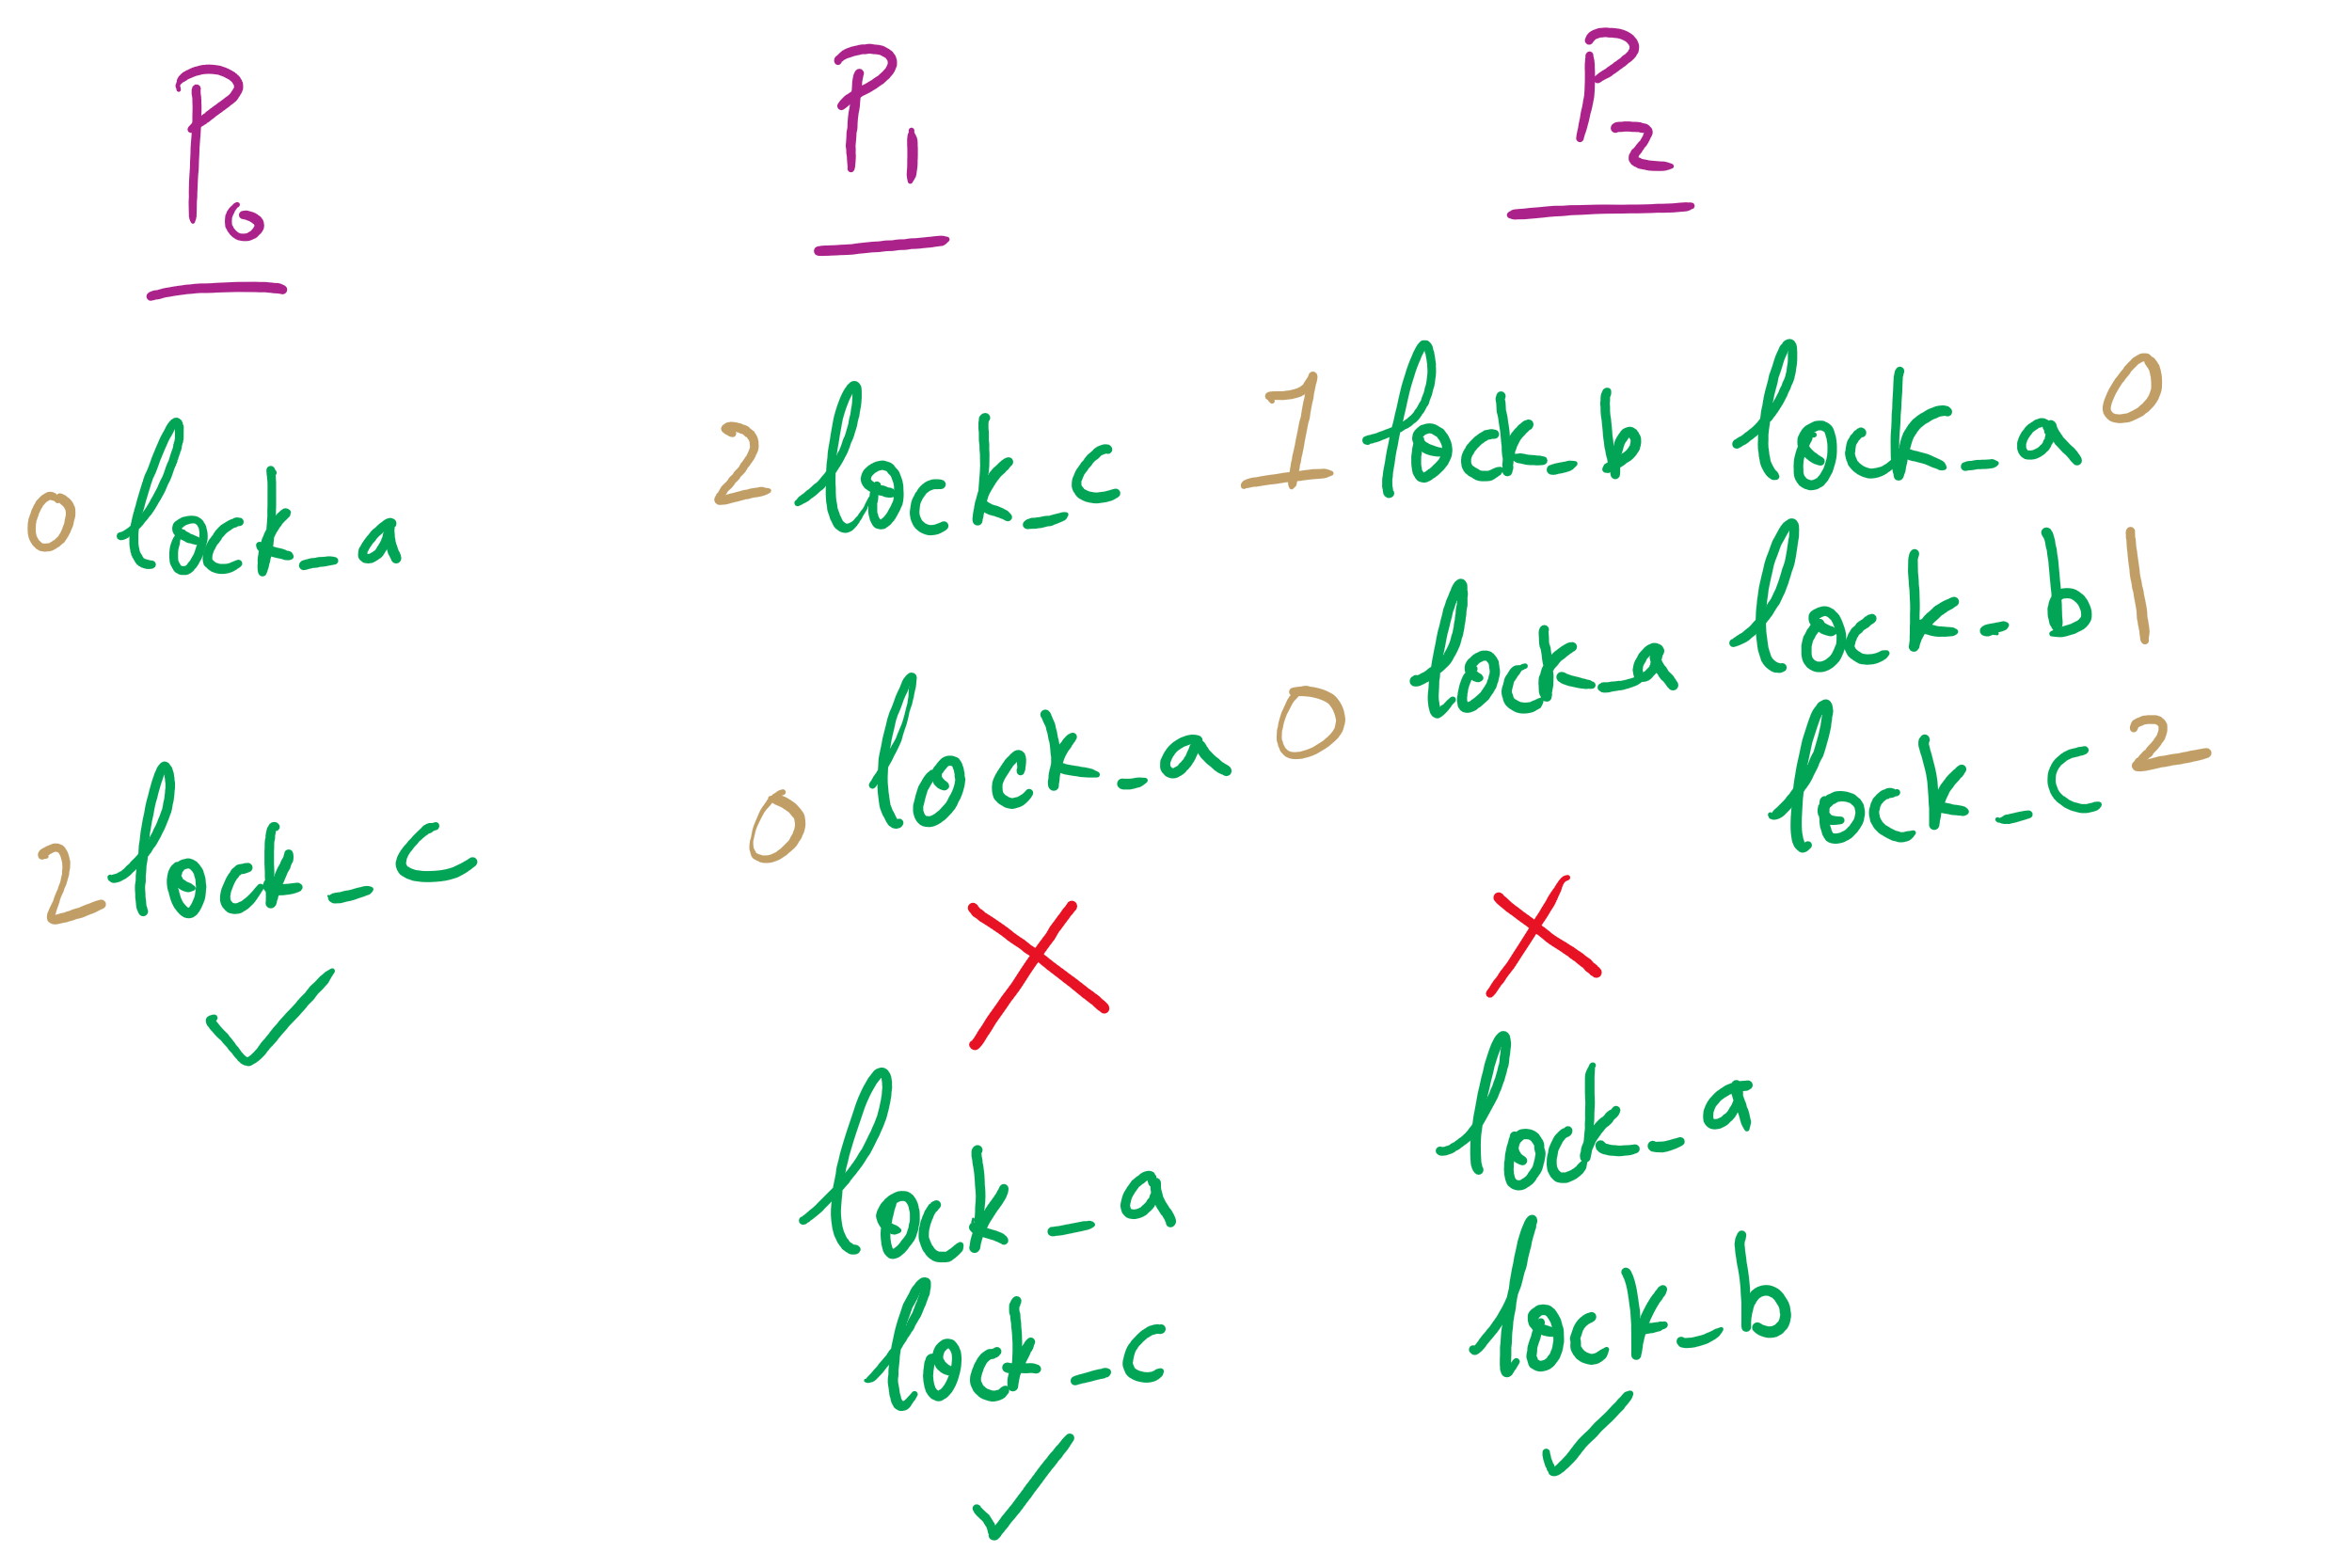 P0
0 lock_a
2 lock_c
P1
2 lock_c
0 lock_a
lock_a
lock_c
P2
1 lock_b
0 lock_a
lock_a
lock_b
lock_a 0
lock_b 1
lock_c 2